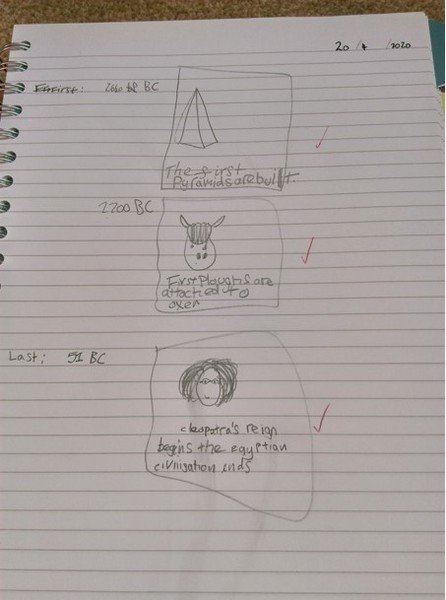 20 / 4 / 2020
First: BC
The first
Pyramids are built.
2200 BC
First Ploughs are
attached to
oxen
Last: 51 BC
cleopatra's reign
begins the egyptian
civilisation ends